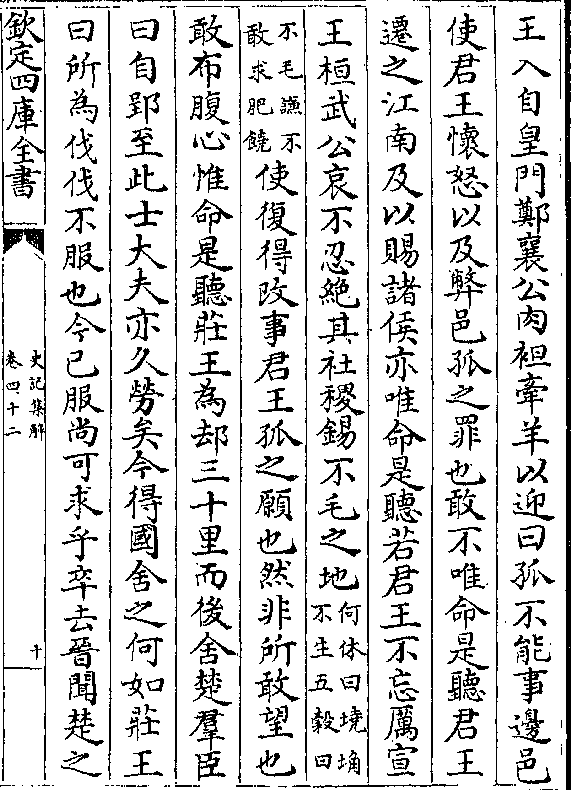 王入自皇門鄭襄公肉袒牽羊以迎曰孤不能事邊邑
使君王懷怒以及弊邑孤之罪也敢不唯命是聽君王
遷之江南及以賜諸侯亦唯命是聽若君王不忘厲宣
王桓武公哀不忍絶其社稷錫不毛之地何休曰墝埆不生五穀曰
不毛謙不敢求肥饒使復得改事君王孤之願也然非所敢望也
敢布腹心惟命是聽莊王為却三十里而後舍楚羣臣
曰自郢至此士大夫亦久勞矣今得國舍之何如莊王
曰所為伐伐不服也今已服尚可求乎卒去晉聞楚之
欽定四庫全書
史記集解
卷四十二
十